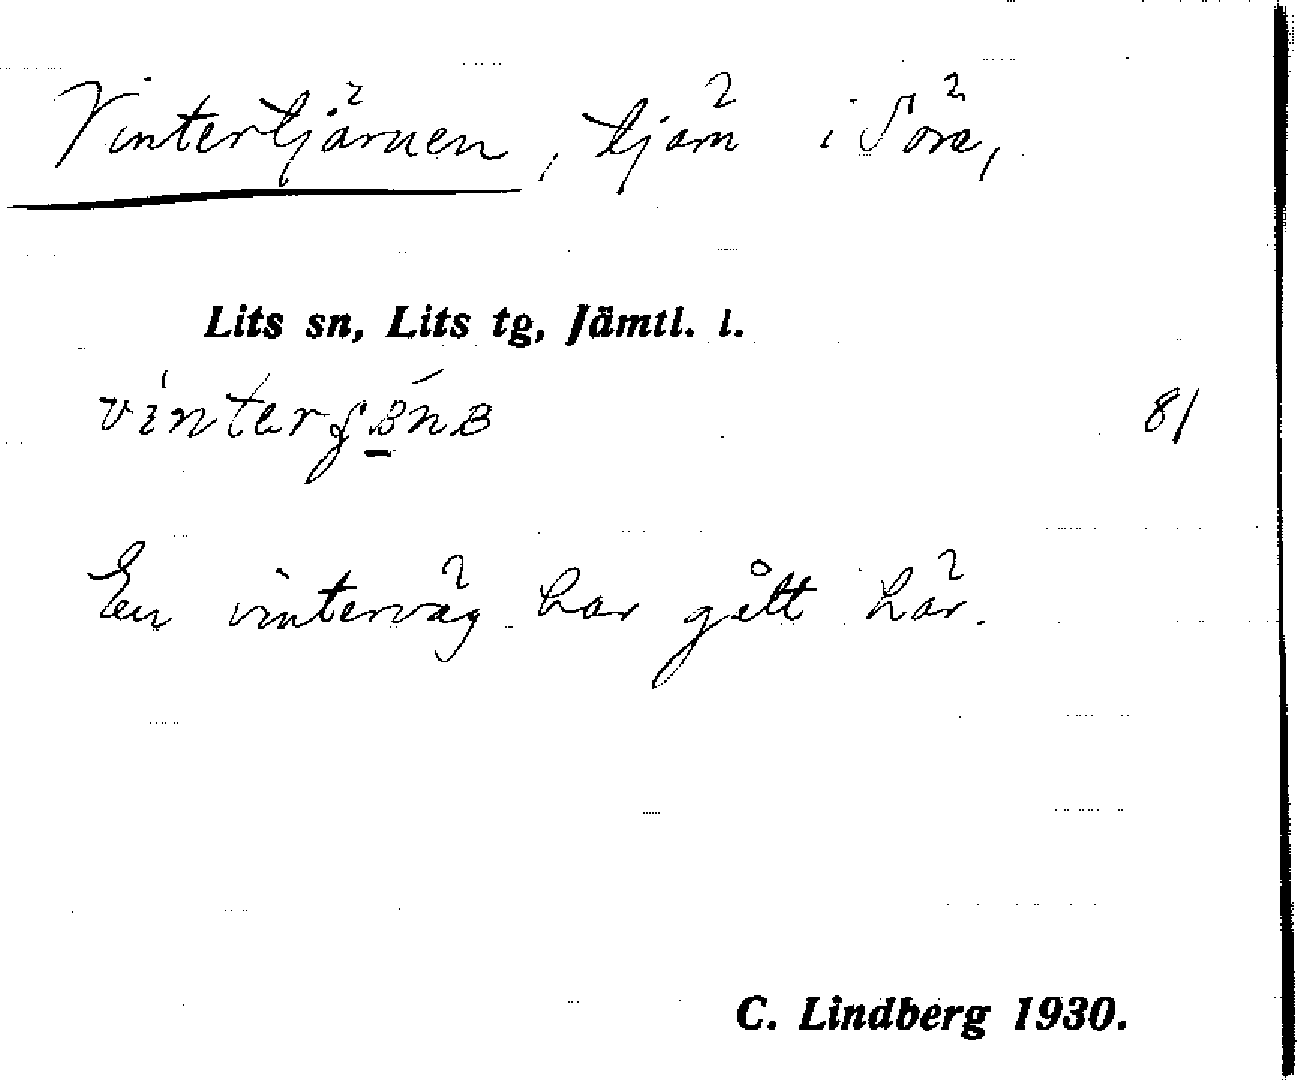 Vintertjärnen, tjärn i Söre,
Lits sn, Lits tg, Jämtl. l.
81
En winterväg har gått här.
C. Lindberg 1930.